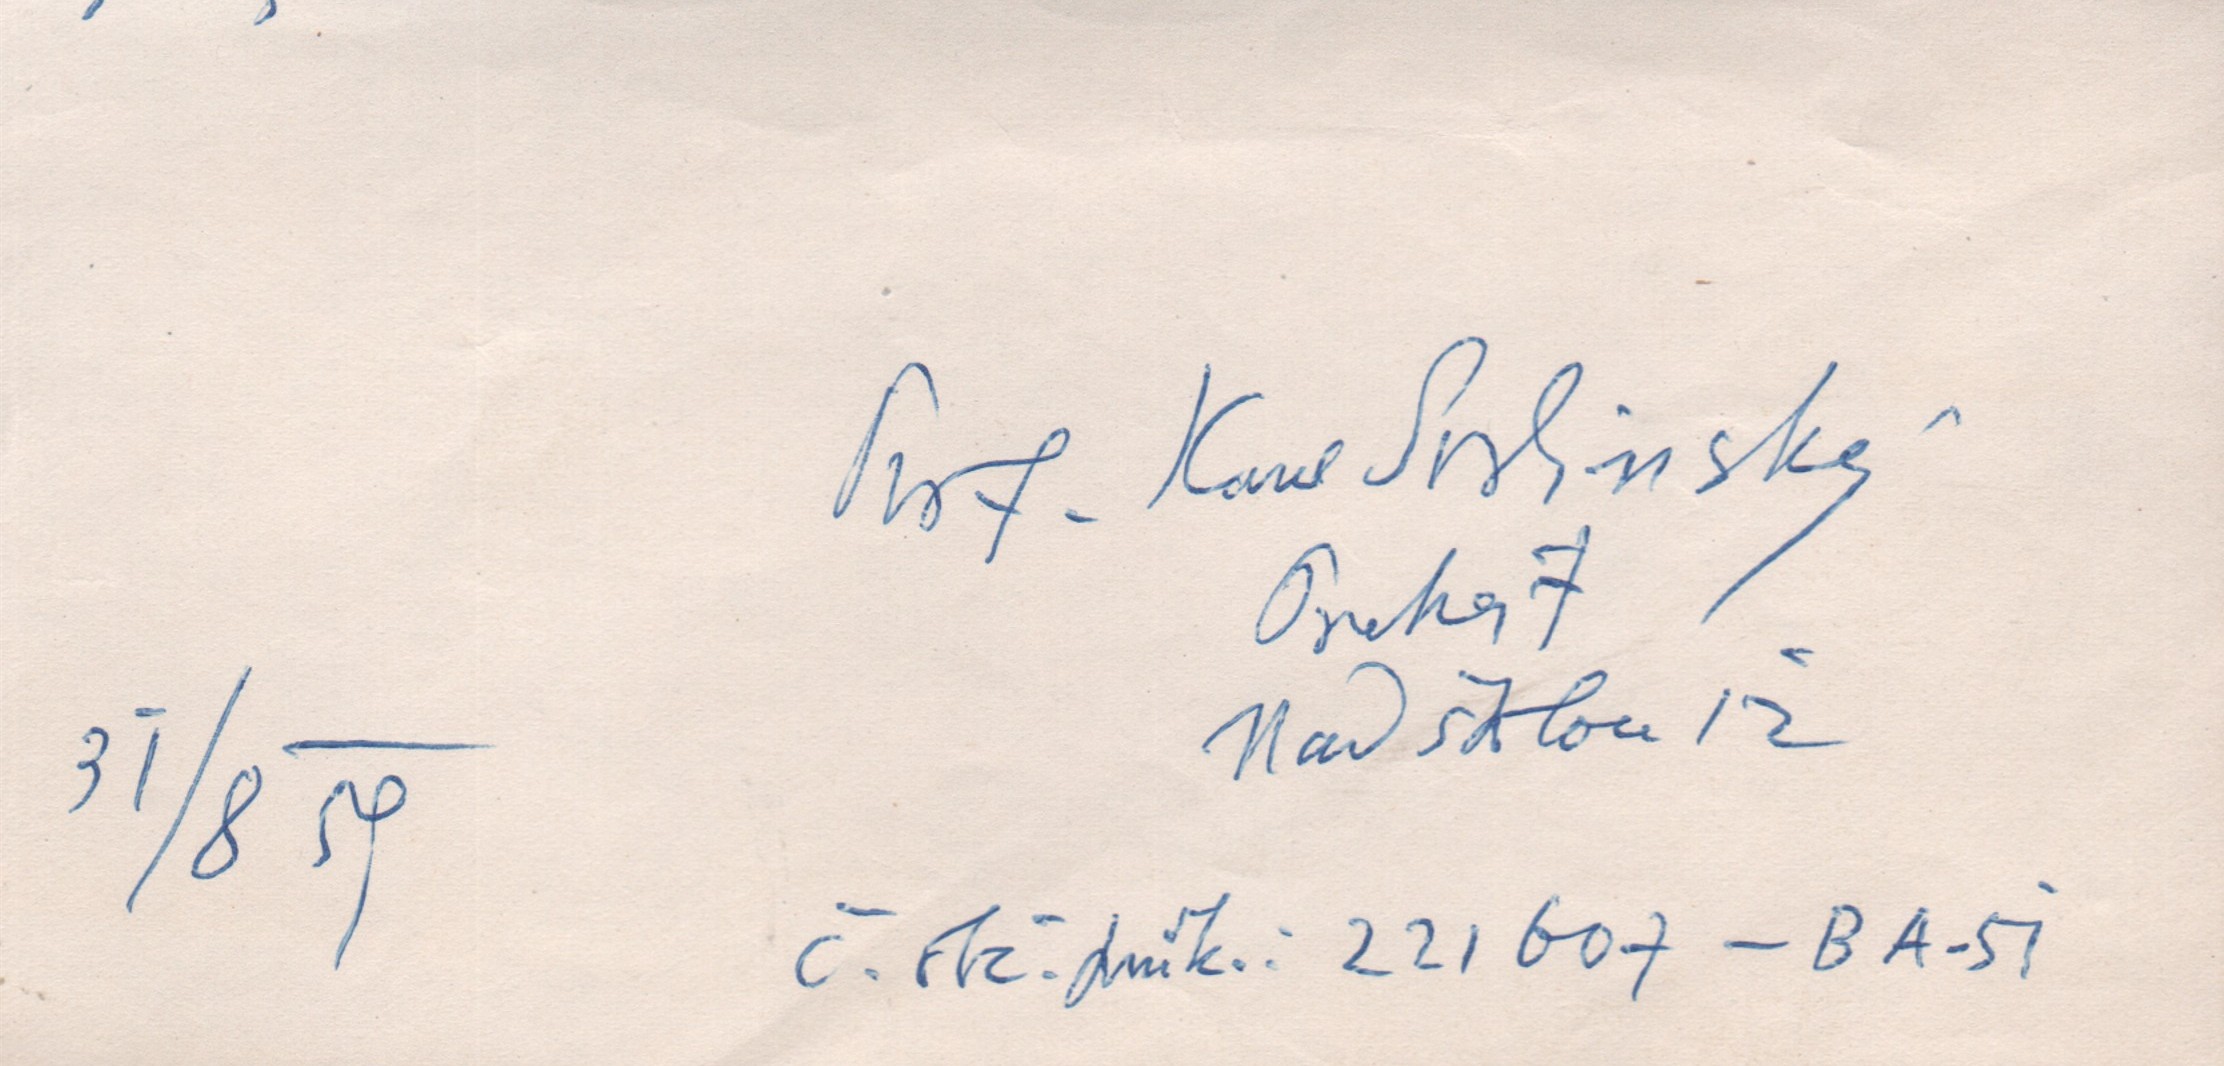 Prof. Karel Svolinský
Praha 7
Nad štolou 12
31/8 59
č. obč. průk.: 221607 – BA-51